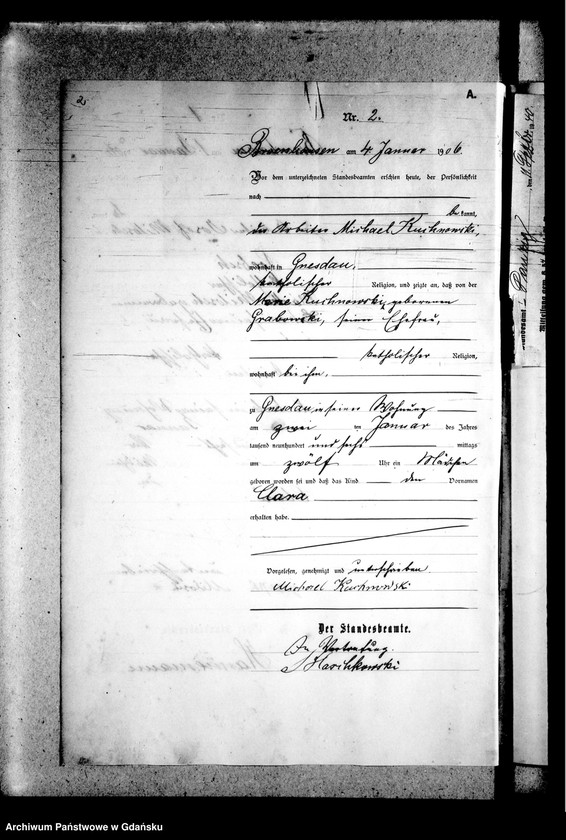 2.
A.
Nr. 2.
am 4. Januar 1906.
Vor dem unterzeichneten Standesbeamten erschien heute, der Persönlichkeit
nach
bekannt,
der Arbeiter Michael Kuchnowski,
wohnhaft in Gnesdau,
katholischer Religion, und zeigte an, daß von der
Marie Kuchnowski, geborenen
Grabowski, seiner Ehefrau,
katholischer Religion,
wohnhaft bei ihm,
zu Gnesdau in seiner Wohnung
am zwei ten Januar des Jahres
tausend neunhundert und sechs mittags
um zwölf Uhr ein Mädchen
geboren worden sei und daß das Kind den Vornamen
Clara
erhalten habe.
Vorgelesen, genehmigt und unterschrieben.
Michael Kuchnowski
Der Standesbeamte.
In Vertretung.
Archiwum Państwowe w Gdańsku